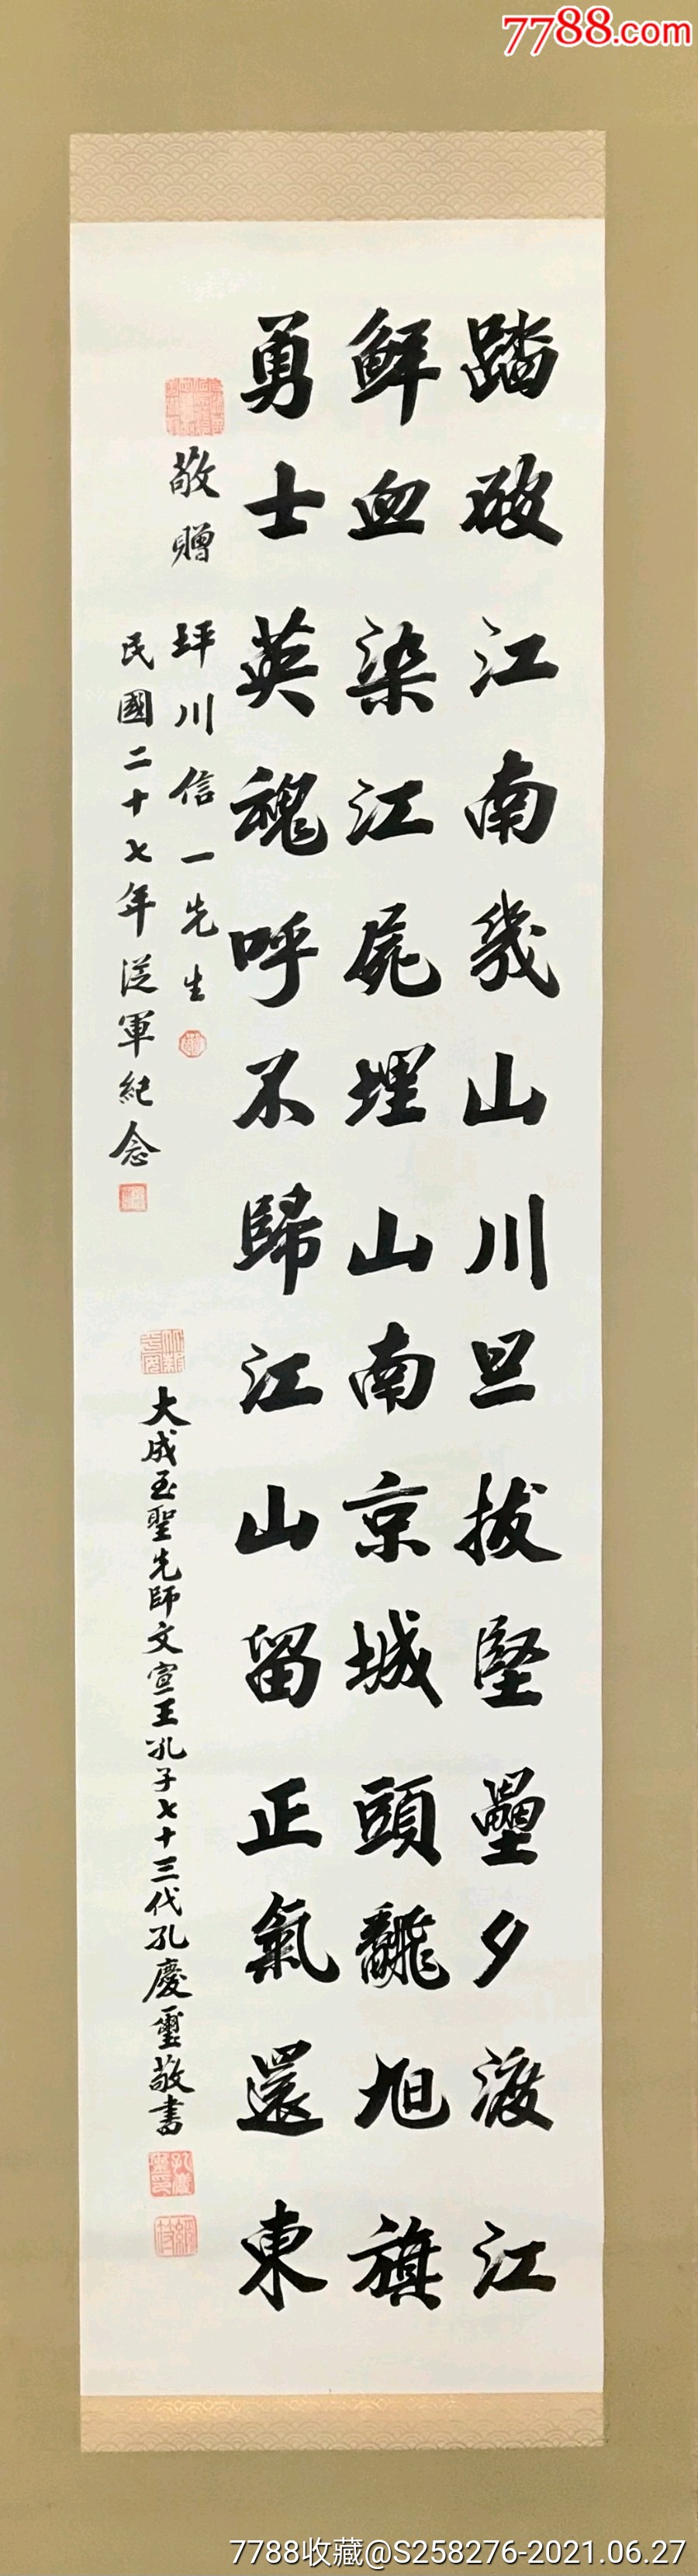 7788.com
踏破江南幾山川旦拔堅壘夕渡江
鮮血染江屍埋山南京城頭飜旭旗
勇士英魂呼不歸江山留正氣還東
敬贈 坪川信一先生
民國二十七年從軍紀念
大成至聖先師文宣王孔子七十三代孔慶璽敬書
7788收藏@S258276-2021.06.27